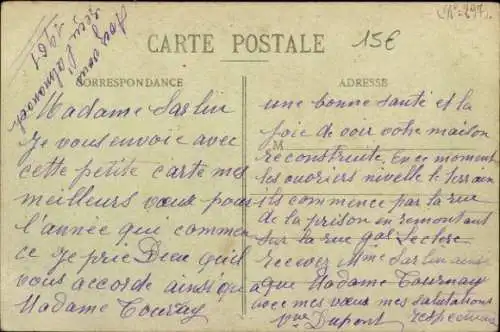 Avez vous
reçu l'almanach
1951
CR-297
15€
CARTE POSTALE
CORRESPONDANCE
ADRESSE
Madame Sarlin
Je vous envoie avec
cette petite carte mes
meilleurs vœux pour
l'année que commen
ce je prie Dieu qu'il
vous accorde ainsi qu a
Madame Tournay
une bonne santé et la
joie de voir votre maison
M
reconstruite. En ce moment
les ouvriers nivelle le terrain
ils commence par la rue
de la prison en remontant
sur la rue gal Leclerc
recevez Mme Sarlin ainsi
que Madame Tournay
avec mes vœux mes salutations
respectueu
Vve Dupont